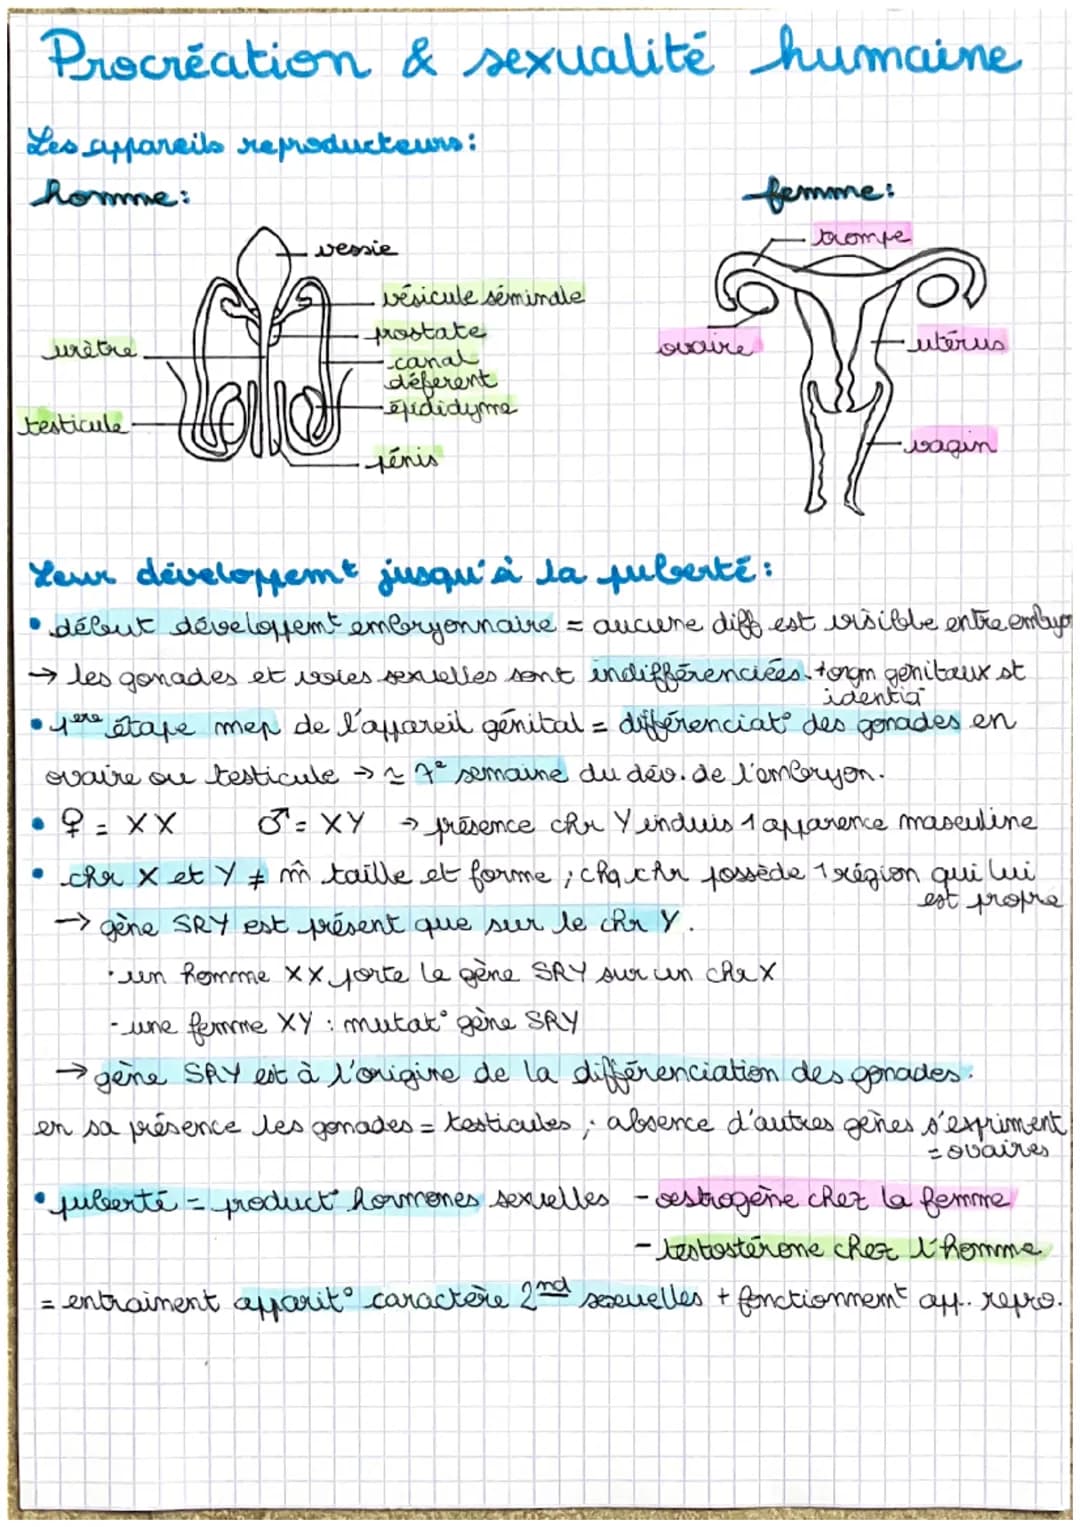 Procréation & sexualité humaine
Les appareils reproducteurs :
homme :
femme :
vessie
vésicule séminale
prostate
canal
déferent
épididyme
pénis
urètre
testicule
trompe
ovaire
utérus
vagin
Leur développemt jusqu'à la puberté :
• début développemt embryonnaire = aucune diff est visible entre embryo
→ les gonades et voies sexuelles sont indifférenciées. + orgn génitaux st
identiq
• 1ère étape mep de l'appareil génital = différenciat° des gonades en
ovaire ou testicule → ≈ 7e semaine du dév. de l'embryon.
• ♀ = XX ♂ = XY → présence chr Y induis 1 apparence masculine
• chr X et Y ≠ m̂ taille et forme ; chq chr possède 1 région qui lui
est propre
→ gène SRY est présent que sur le chr Y.
· un homme XX porte le gène SRY sur un chr X
- une femme XY : mutat° gène SRY
→ gène SRY est à l'origine de la différenciation des gonades.
en sa présence les gonades = testicules ; absence d'autres gènes s'expriment
= ovaires
• puberté = product° hormones sexuelles - oestrogène chez la femme
- testostérone chez l'homme
= entrainent apparit° caractère 2nd sexuelles + fonctionnemt app. repro.